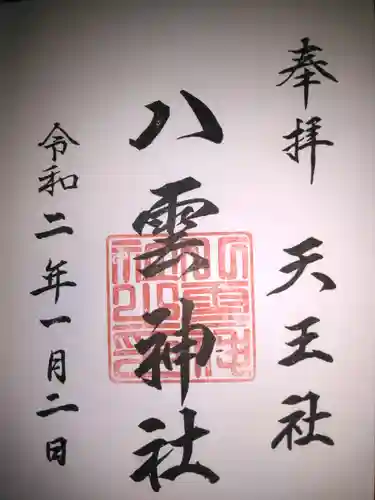 奉拝 天王社
八雲神社
令和二年一月二日